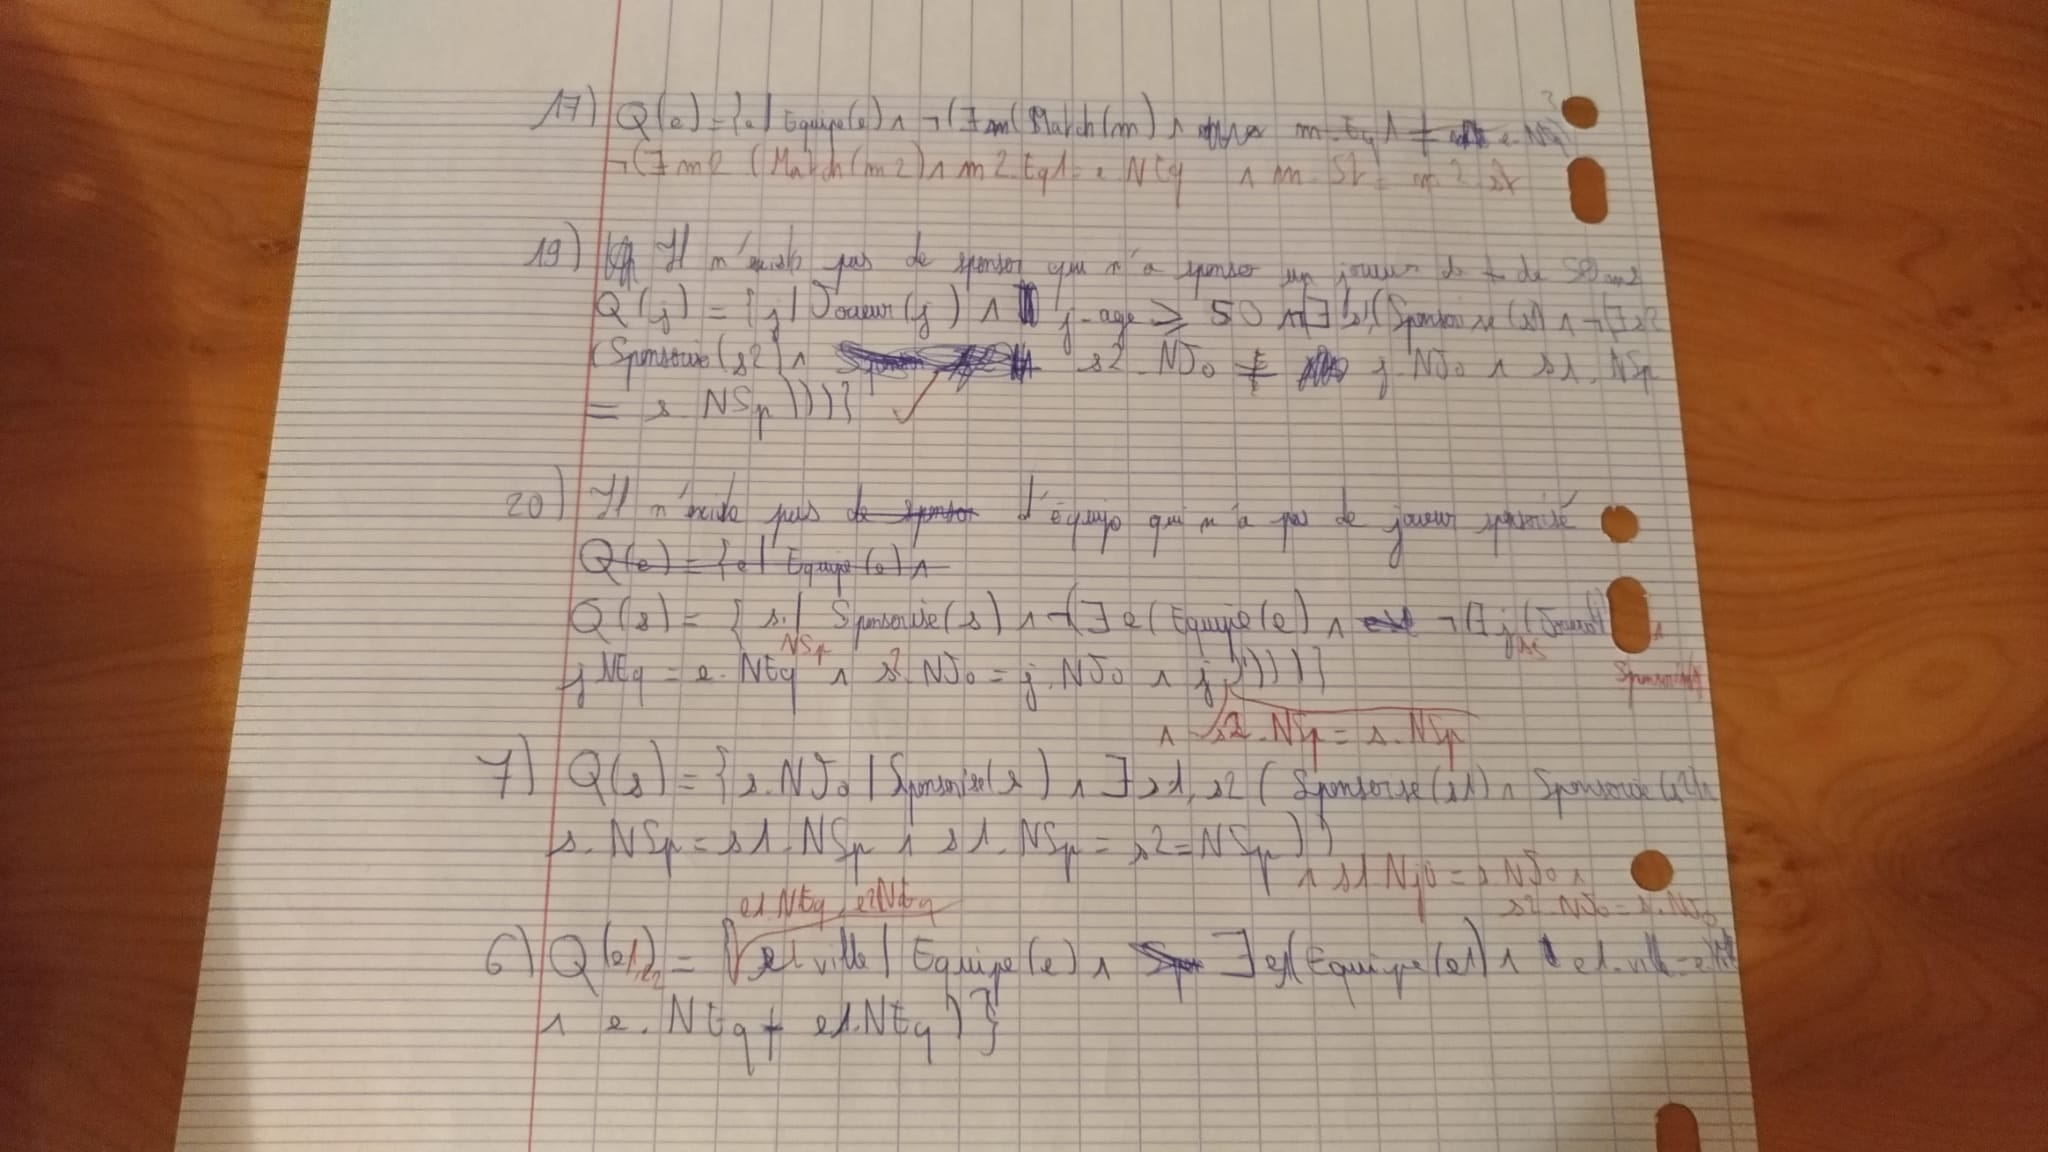 17) Q(e) = {e | Equipe(e) ∧ ¬(∃m(Match(m) ∧ m.Eq1 ≠ e.NEq
¬(∃m2 (Match(m2) ∧ m2.Eq1 = e.NEq ∧ m.St = m2.St
19) Il n'existe pas de sponsor qui n'a sponsor un joueur de + de 50 ans
Q(j) = {j | Joueur(j) ∧ j.age ≥ 50 ∧ ¬(∃s1(Sponsorise(s1) ∧ ¬(∃s2
(Sponsorise(s2) ∧ s2.NJo ≠ j.NJo ∧ s1.NSp
= s.NSp))))}
20) Il n'existe pas de sponsor d'équipe qui n'a pas de joueur sponsorisé
Q(e) = {e | Equipe(e) ∧
Q(s) = {s. | Sponsorise(s) ∧ ¬(∃e(Equipe(e) ∧ ¬(∃j(Joueur(j) ∧
NSp
j.NEq = e.NEq ∧ s2.NJo = j.NJo ∧ j.))))}
∧ s2.NSp = s.NSp
7) Q(s) = {s.NJo | Sponsorise(s) ∧ ∃s1, s2 (Sponsorise(s1) ∧ Sponsorise(s2) ∧
s.NSp = s1.NSp ∧ s1.NSp = s2=NSp))
∧ s1.NJo = s.NJo ∧
s2.NJo = s.NJo
e1.NEq, e2NEq
6) Q(e1,e2) = {e1.ville | Equipe(e) ∧ ∃e1(Equipe(e1) ∧ e1.ville = e.ville
∧ e.NEq ≠ e1.NEq)}